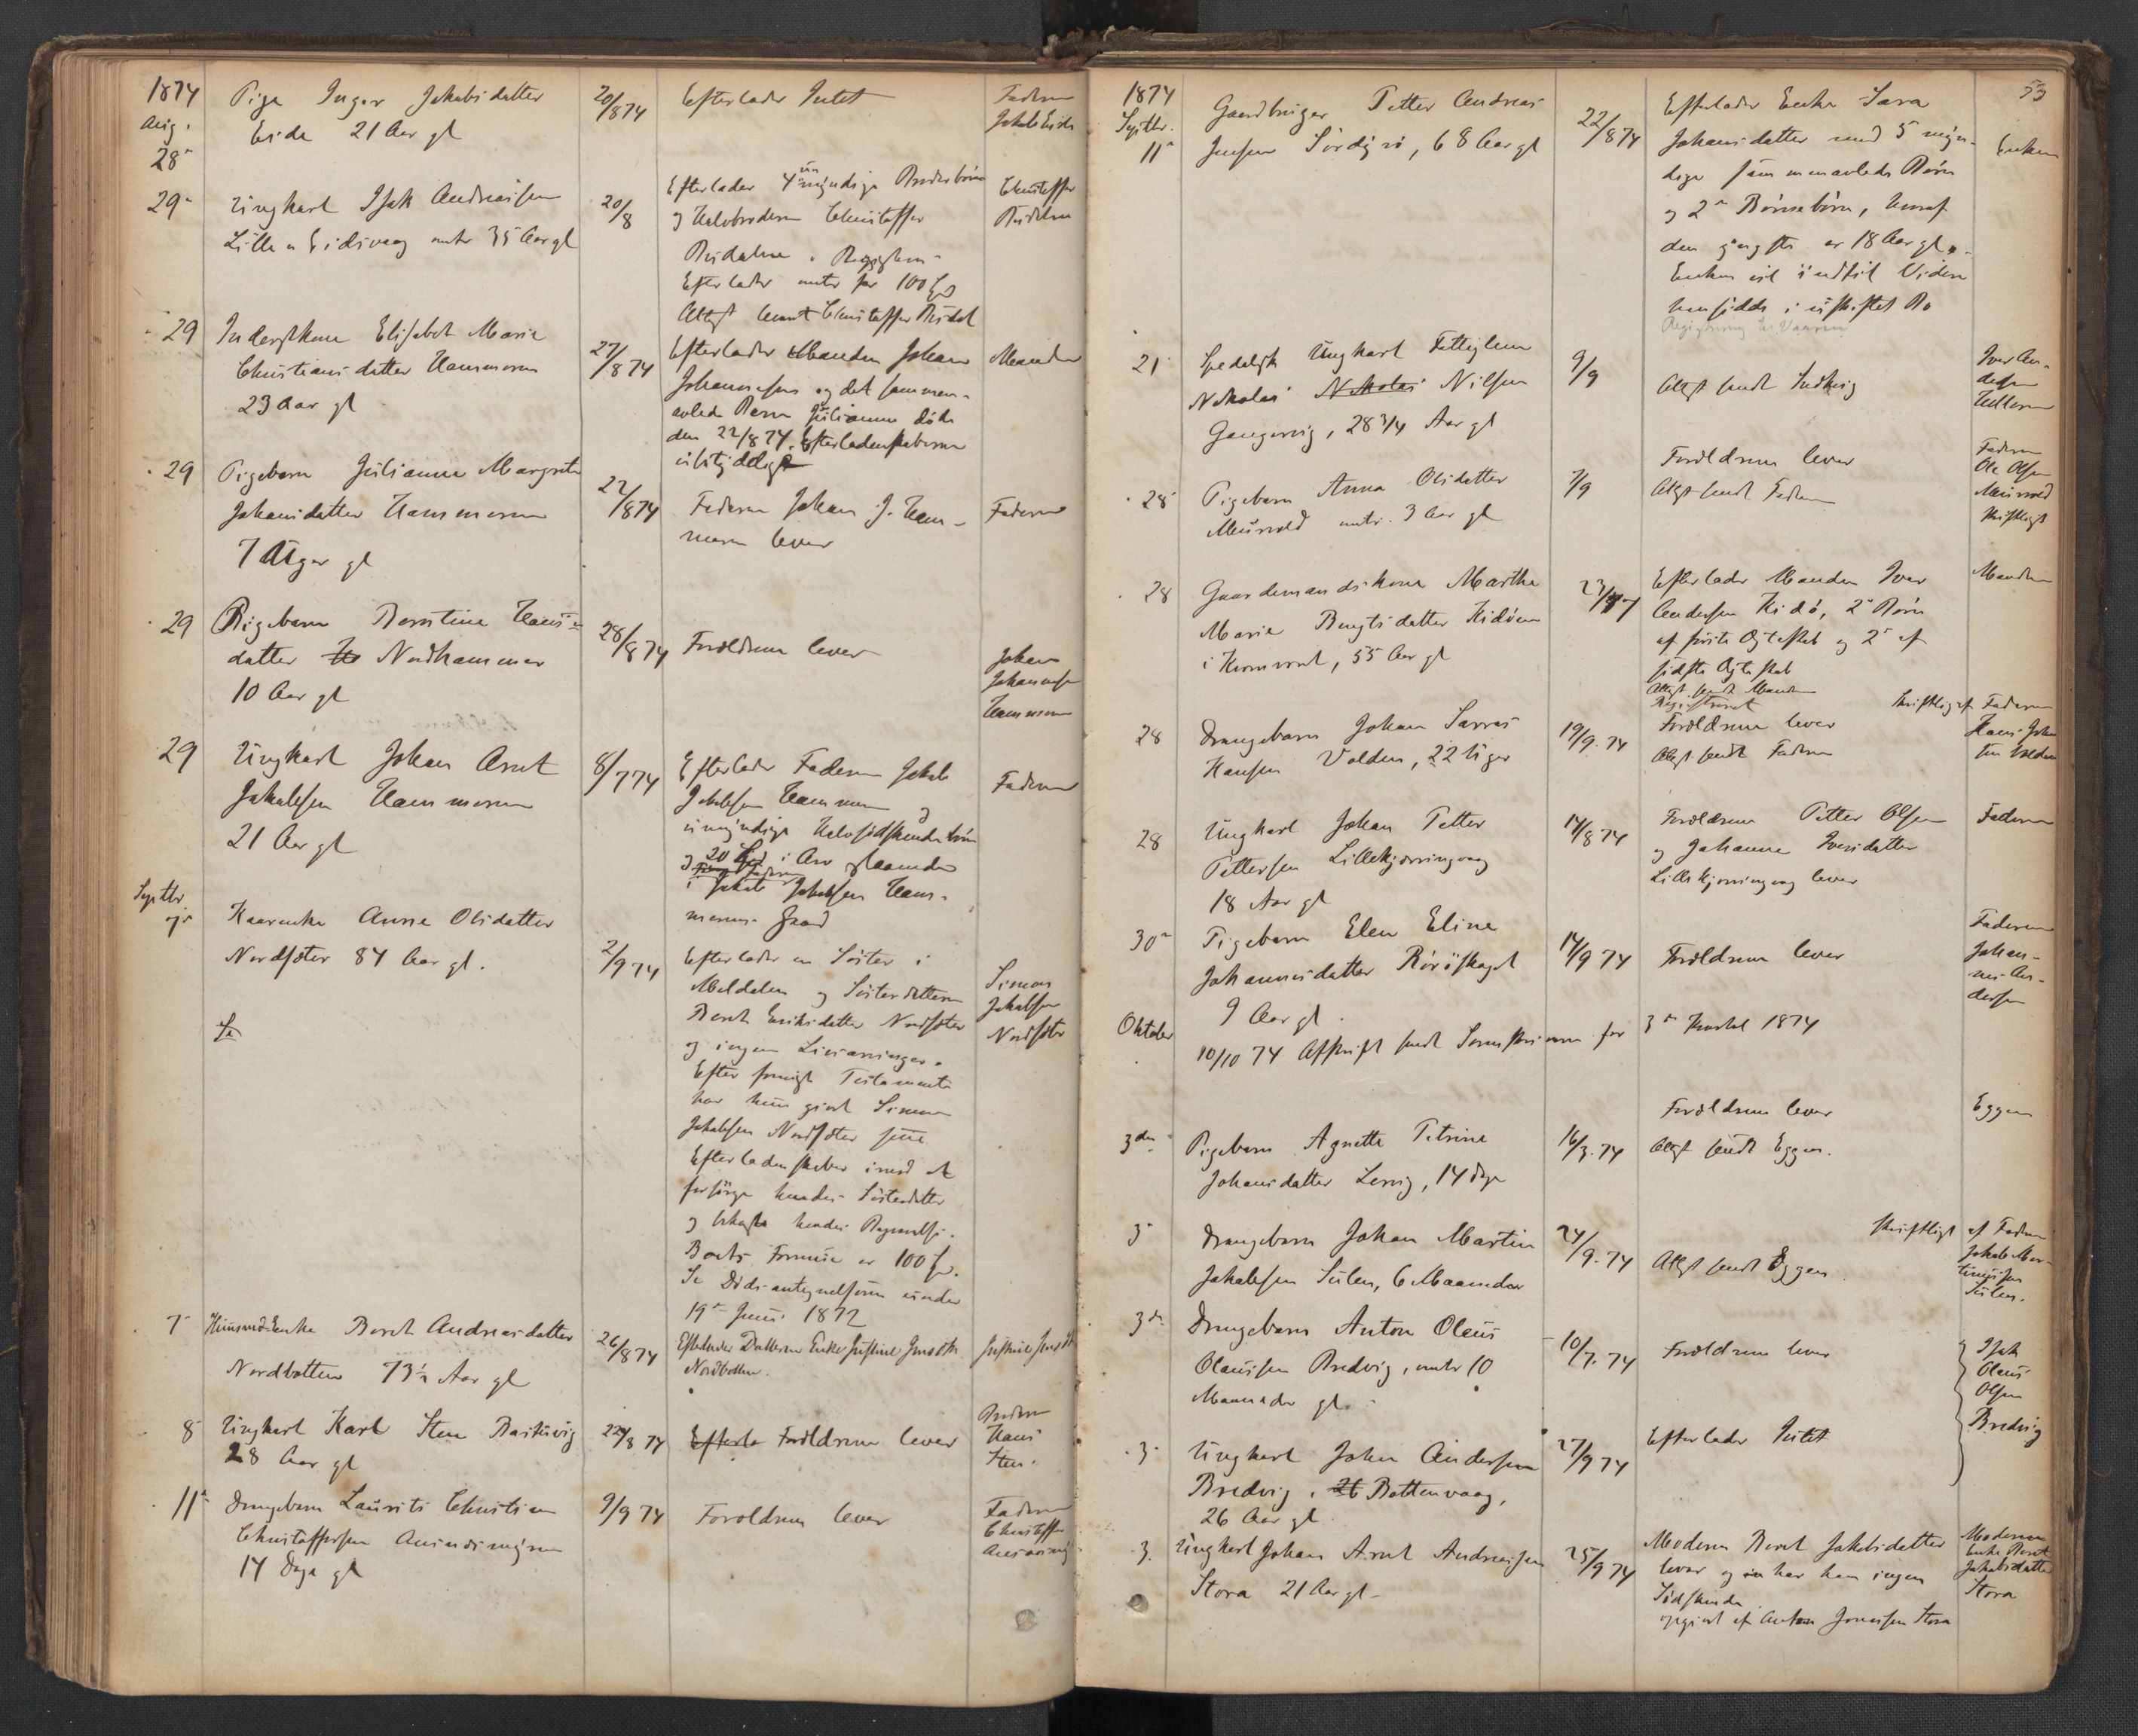 1874
Aug.
28
Pige Inger Jakobsdatter
Eide 21 Aar gl
20/874
Efterlader Intet
Faderen
Jakob Eide
29
Ungkarl Isak Andreassen
Lille Eidsvaag 35 Aar gl
20/8
Efterlader 4 umyndige
og Halvbroderen Christoffer
Efterlader for 100
Attest Christoffer
Christoffer
29
Inderstkone Elisabet Marie
Christiansdatter Hammeren
23 Aar gl
27/874
Efterlader Manden Johan
Johannessen og det sammen-
avlede Barn Julianna døde
den 22/874. Efterladenskaberne
ubetydelige
Manden
29
Pigebarn Julianna Margrete
Johansdatter Hammeren
7 Uger gl
22/874
Faderen Johan J. Ham-
meren lever
Faderen
29
Pigebarn Berntine Hans-
datter Nordhammer
10 Aar gl
28/874
Forældrene lever
Johan
Johannessen
Hammeren
29
Ungkarl Johan Arnt
Jakobsen Hammeren
21 Aar gl
8/774
Efterlader Faderen Jakob
Jakobsen Hammeren og
umyndige Halvsødskende
og 20 i Arv staaende
i Jakob Jakobsen Ham-
merens Gaard
Faderen
Septbr
7
Kaarenke Anne Olsdatter
Nordsæter 84 Aar gl.
2/974
Efterlader en Søster i
Meldalen og Søsterdatteren
Beret Eriksdatter Nordsæter
og ingen Livsarvinger.
Efter Testamente
har hun givet Simon
Jakobsen Nordsæter sine
Efterladenskaber imod at
forsørge hendes Søsterdatter
og bekoste hendes Begravelse.
Boets Formue er 100
Se Dødsantegnelserne under
19 Juni 1872
Simon
Jakobsen
Nordsæter
7
Huusmandsenke Beret Andreasdatter
Nordbotten 73½ Aar gl
26/874
Efterlader Datteren Enke Justine Jensdtr
Nordbotten.
Justine Jensdtr
8
Ungkarl Karl Sten
28 Aar gl
22/8 74
Forældrene lever
Hans
Sten.
11
Drengebarn Laurits Christian
Christoffersen
14 Dage gl
9/9 74
Forældrene lever
Faderen
Christoffer
53
1874
Septbr.
11
Gaardbruger Petter Andreas
Jensen Sørdyrø, 68 Aar gl
22/874
Efterlader Enke Sara
Johansdatter med 5 myn-
dige sammenavlede Børn
og 2 Børnebørn, hvoraf
den yngste er 18 Aar gl.
Enken vil indtil Videre
hensidde i uskiftet Bo
Enken
21
Spedalsk Ungkarl Fattiglem
Nikolai Nikolai Nilsen
Gangeraig, 28 3/4 Aar gl
9/9
Attest sendt
Iver An-
dersen
28
Pigebarn Anna Olsdatter
3 Aar gl
7/9
Forældrene lever
Attest sendt Faderen
Faderen
Ole Olsen
skriftligt
28
Gaardmandskone Martha
Marie Bengtsdatter Hidøen
i 55 Aar gl
Efterlader Manden Iver
Andersen Hidø, 2 Børn
af første Ægteskab og 2 af
sidste Ægteskab
Attest sendt Manden
Registreret
Manden
28
Drengebarn Johan
Hansen Valden, 22 Uger
19/9. 74
Forældrene lever
Attest sendt Faderen
Skriftlig af Faderen
Hans Johan
28
Ungkarl Johan Petter
Pettersen Lillekjørringvaag
18 Aar gl
14/8 74
Forældrene Petter Olsen
og Johanna Iversdatter
Lillekjørringvaag lever
Faderen
30
Pigebarn Elen Eline
Johannesdatter Rørøskaget
9 Aar gl.
14/9 74
Forældrene lever
Faderen
Johan-
nes An-
dersen
Oktober
10/10 74 Afskrift sendt Sorenskriveren for 3 Kvartal 1874
3die
Pigebarn Agnette Petrine
Johansdatter Lervig, 14 Dage
16/3.74
Forældrene lever
Attest sendt Eggen.
Eggen
3
Drengebarn Johan Martin
Jakobsen Sulen, 6 Maaneder
24/9.74
Attest sendt Eggen
skriftligt af Faderen
Jakob Mar-
tinussen
Sulen.
3die
Drengebarn Anton Olaus
Olaussen Bredvig, 10
Maaneder gl.
10/7.74
Forældrene lever
Isak
Olaus
Olsen
Bredvig
3
Ungkarl Johan Andersen
Bredvig i Bottenvaag,
26 Aar gl
27/9 74
Efterlader Intet
3.
Ungkarl Johan Arnt Andreassen
Stora 21 Aar gl
25/9 74
Moderen Beret Jakobsdatter
lever og har han ingen
Sødskende
opgivet af Anton Jonassen Stora
Moderen
Enke Beret
Jakobsdatter
Stora